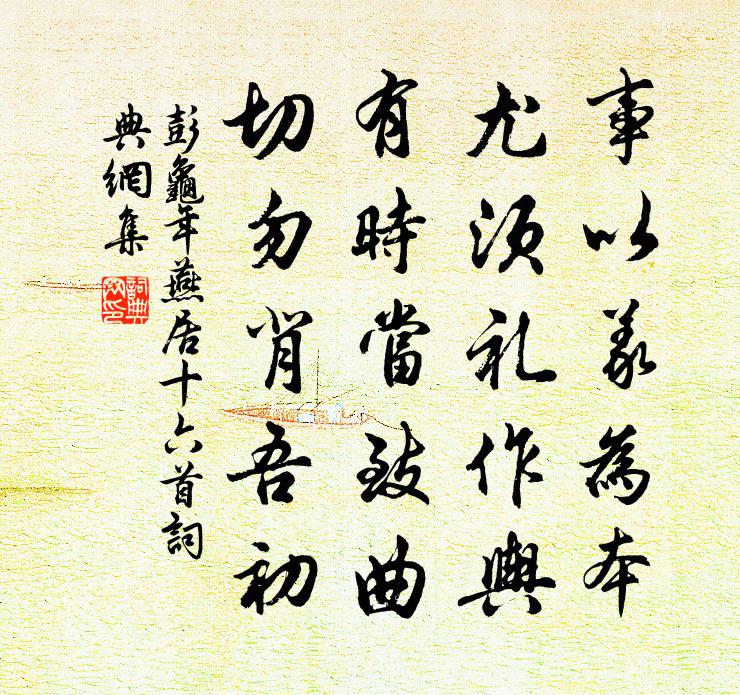 事以义為本
尤須礼作輿
有時當致曲
切勿背吾初
彭龜年燕居十六首詞
典網集
詞典網印